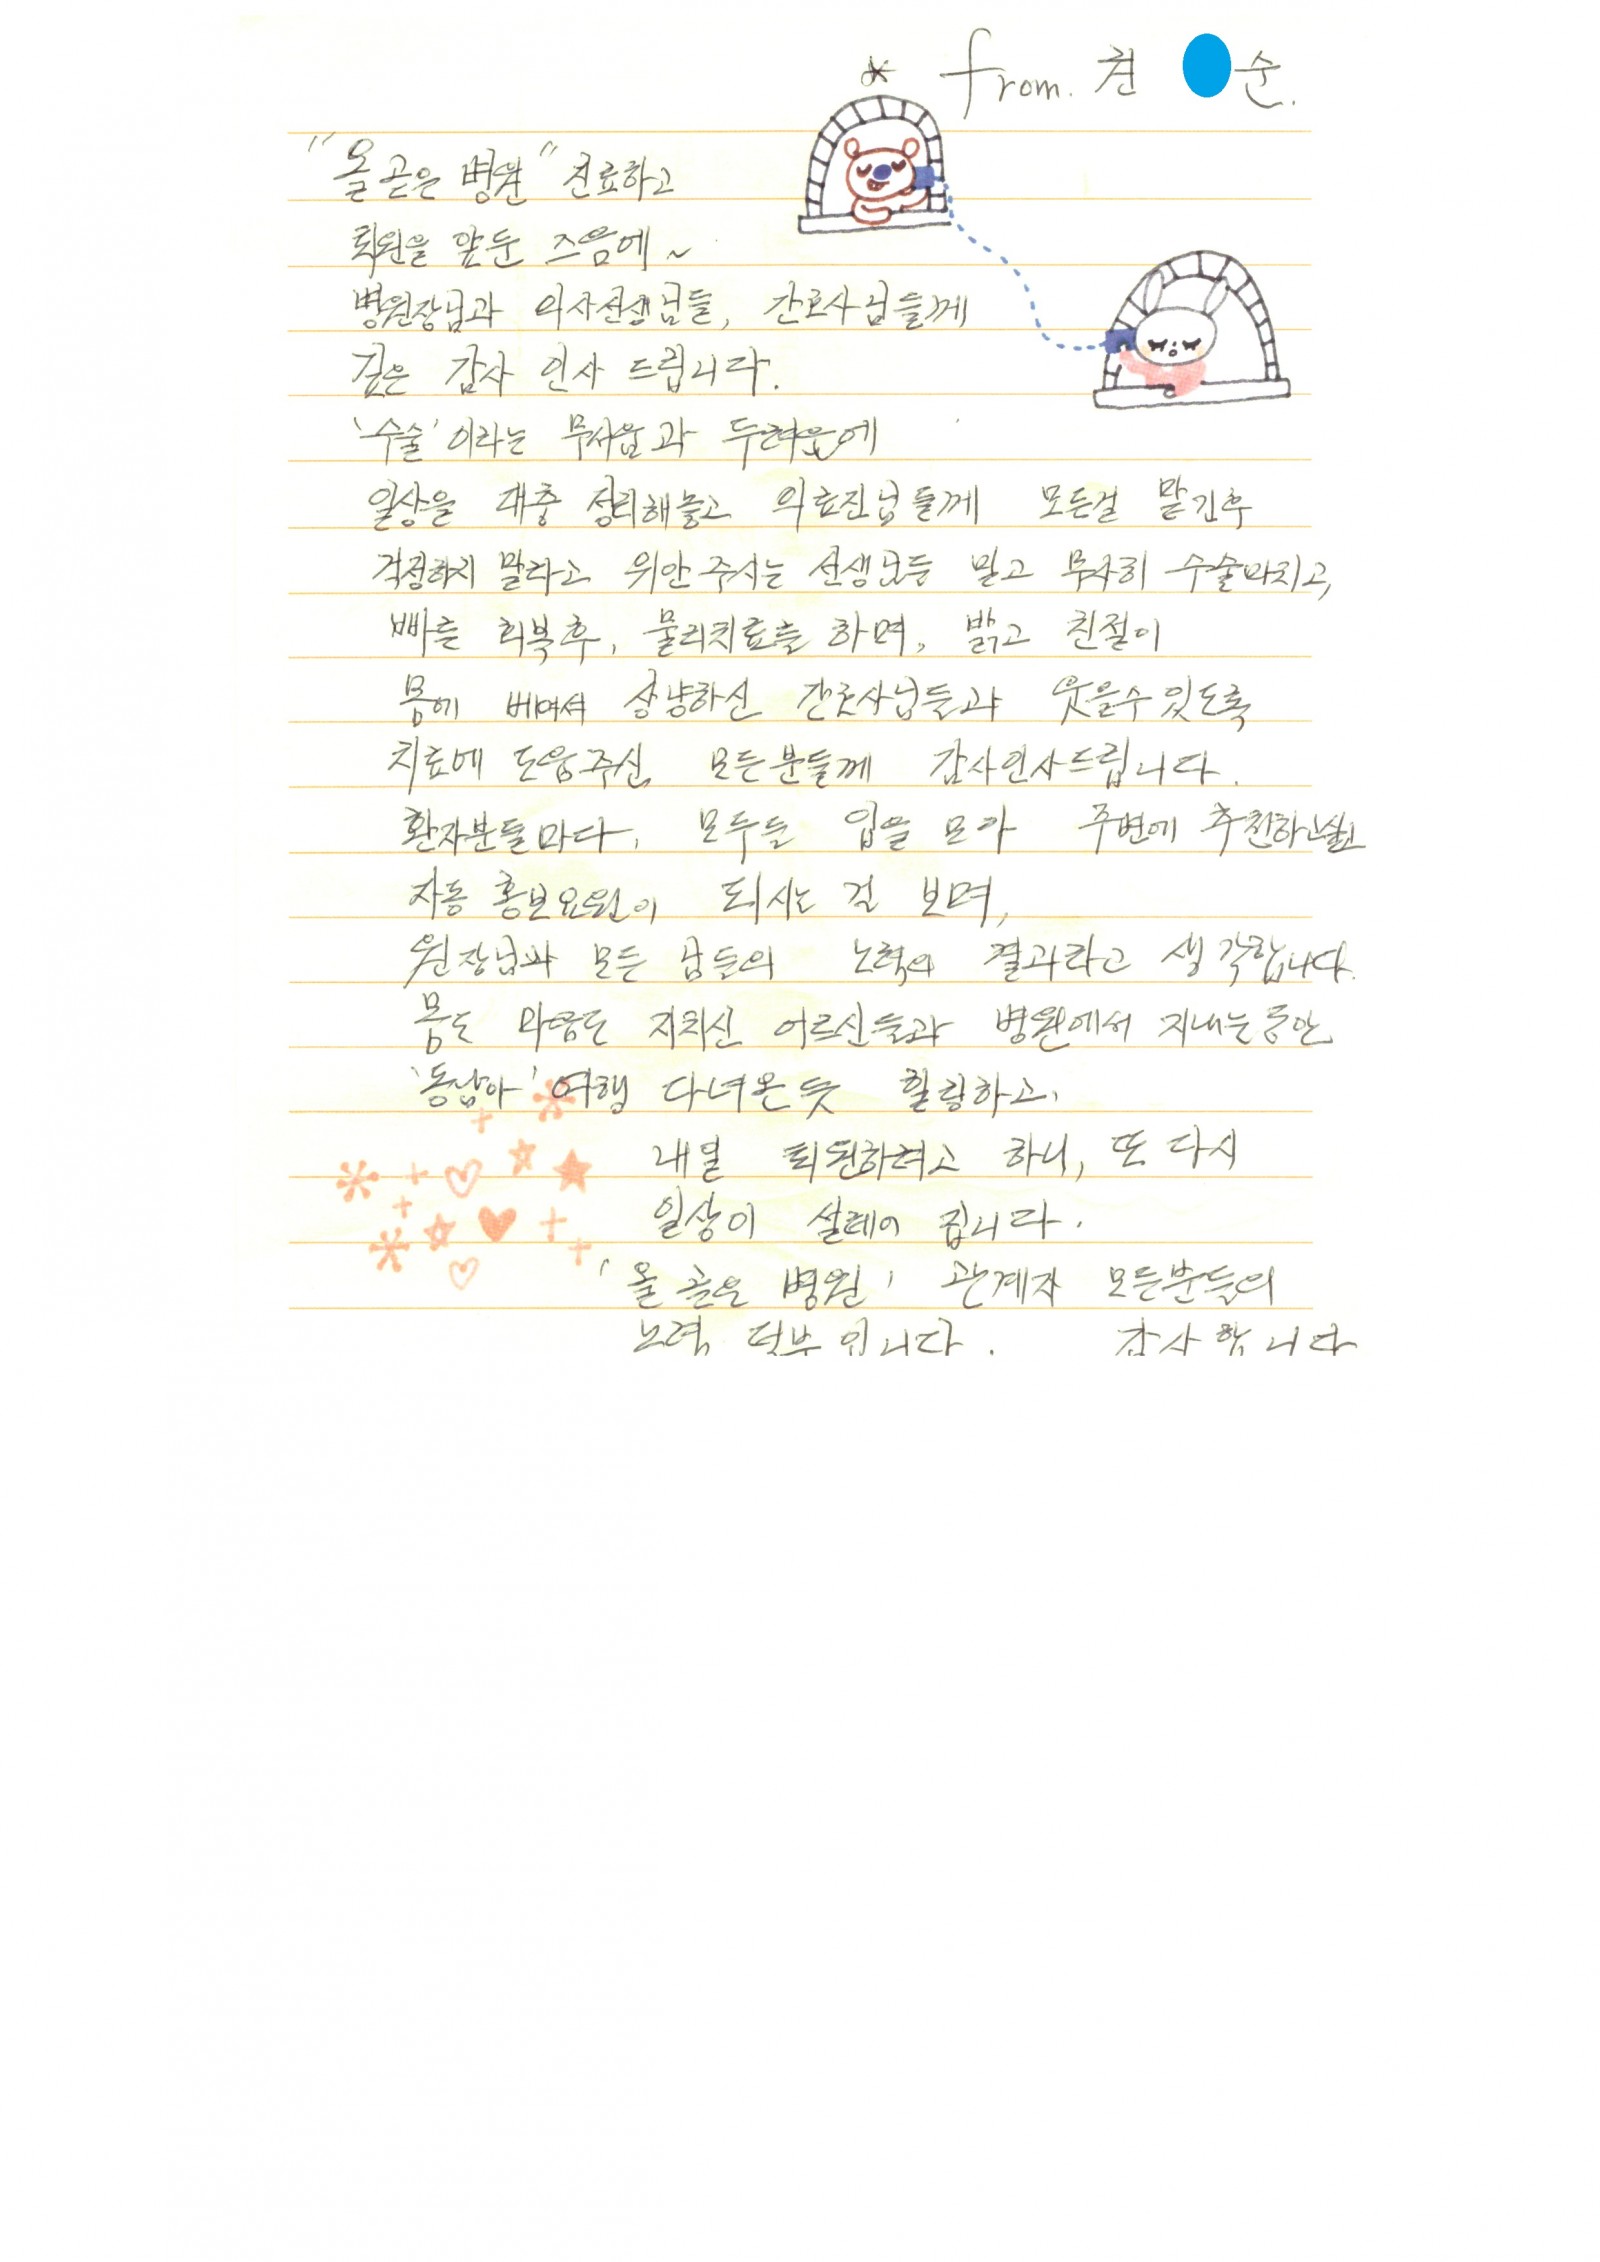 * from. 천 순.
"올곧은 병원" 진료하고
퇴원을 앞둔 즈음에~
병원장님과 의사선생님들, 간호사님들께
깊은 감사 인사 드립니다.
'수술'이라는 무서움과 두려움에
일상을 대충 정리해놓고 의료진님들께 모든걸 맡긴후
걱정하지 말라고 위안주시는 선생님들 믿고 무사히 수술마치고,
빠른 회복후, 물리치료를 하며, 밝고 친절이
몸에 베여서 상냥하신 간호사님들과 웃을수있도록
치료에 도움주신 모든분들께 감사인사드립니다.
환자분들마다, 모두들 입을 모아 주변에 추천하고싶고
자동 홍보요원이 되시는 걸 보며,
원장님과 모든 님들의 노력의 결과라고 생각합니다.
몸도 마음도 지치신 어르신들과 병원에서 지내는동안
'동남아' 여행 다녀온듯 힐링하고,
내일 퇴원하려고 하니, 또 다시
일상이 설레어 집니다.
'올곧은 병원' 관계자 모든분들의
노력 덕부입니다. 감사합니다